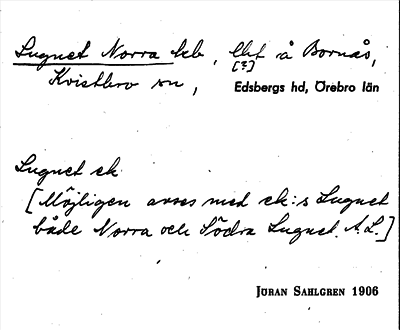 Lugnet Norra hb, lht å Bornås,
[?]
Kvistbro sn,
Edsbergs hd, Örebro län
Lugnet ek
[Möjligen avses med ek:s Lugnet
både Norra och Södra Lugnet. A.L.]
JÖRAN SAHLGREN 1906